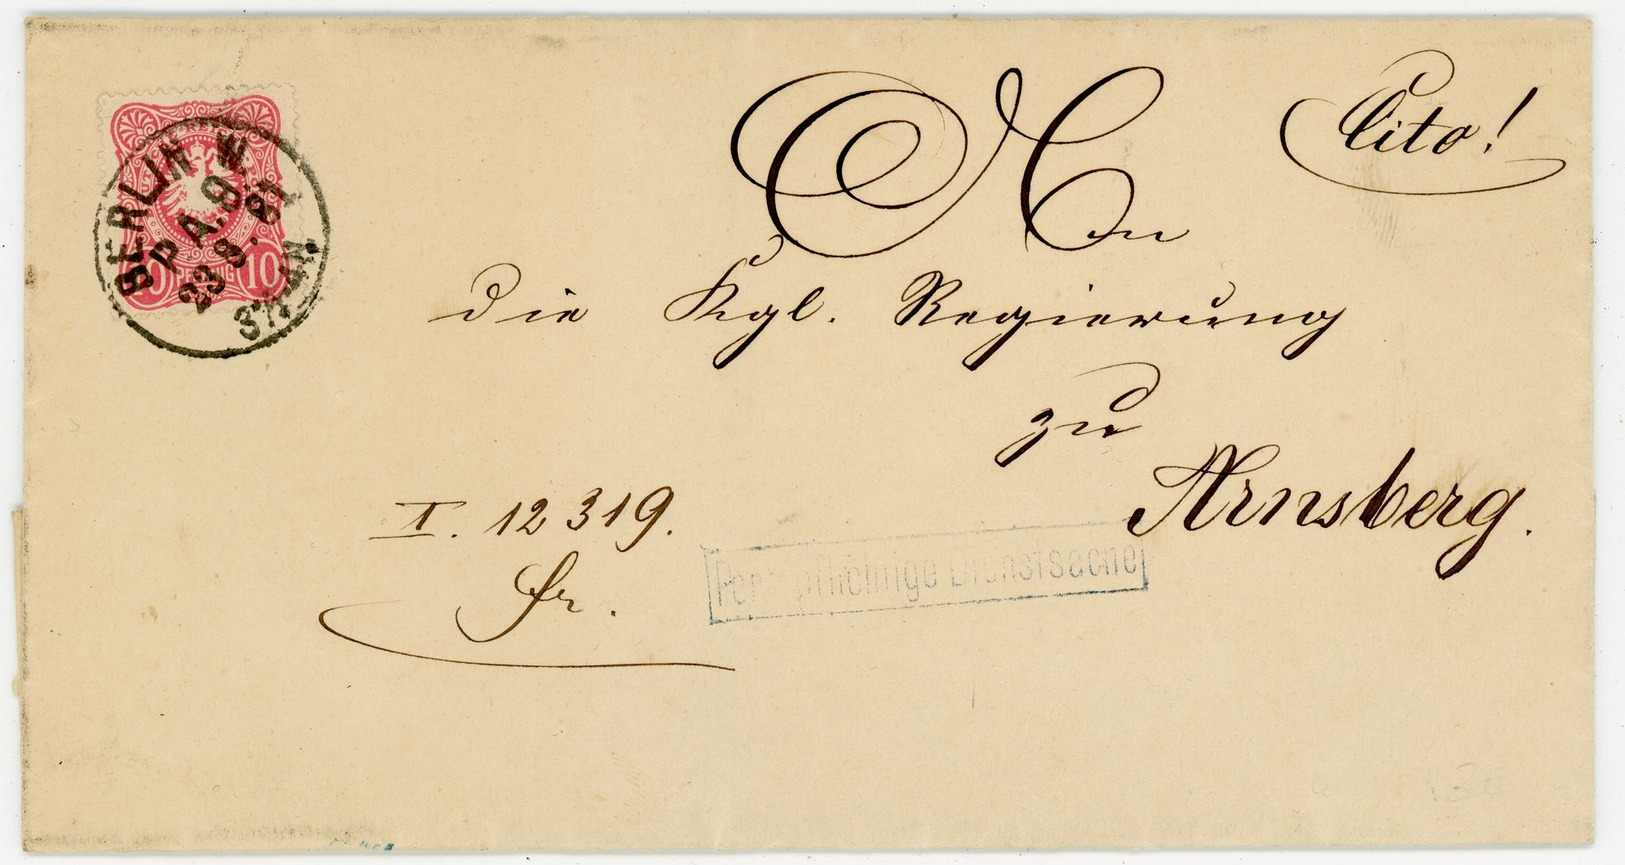 Cito!
An
die Kgl. Regierung
zu
Arnsberg.
I. 12319.
fr.
Portopflichtige Dienstsache
BERLIN W.
P.A. 9.
23 9. 81
3-4N.
10 PFENNIG 10